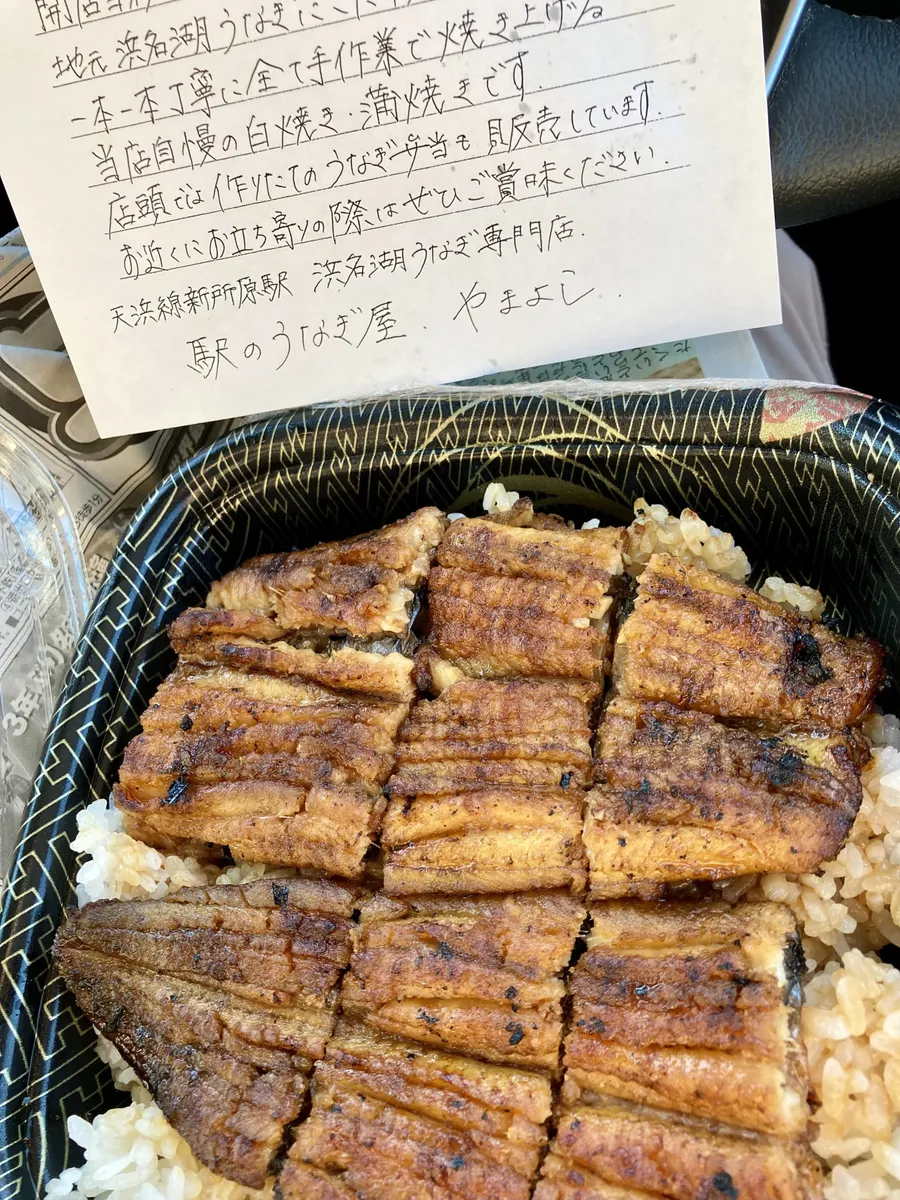 開店当初
地元 浜名湖うなぎにこだわ
一本一本丁寧に全て手作業で焼き上げる
当店自慢の白焼き・蒲焼きです.
店頭では作りたてのうなぎ弁当も販売しています.
お近くにお立ち寄りの際はぜひご賞味ください.
天浜線新所原駅 浜名湖うなぎ専門店.
駅のうなぎ屋. やまよし.